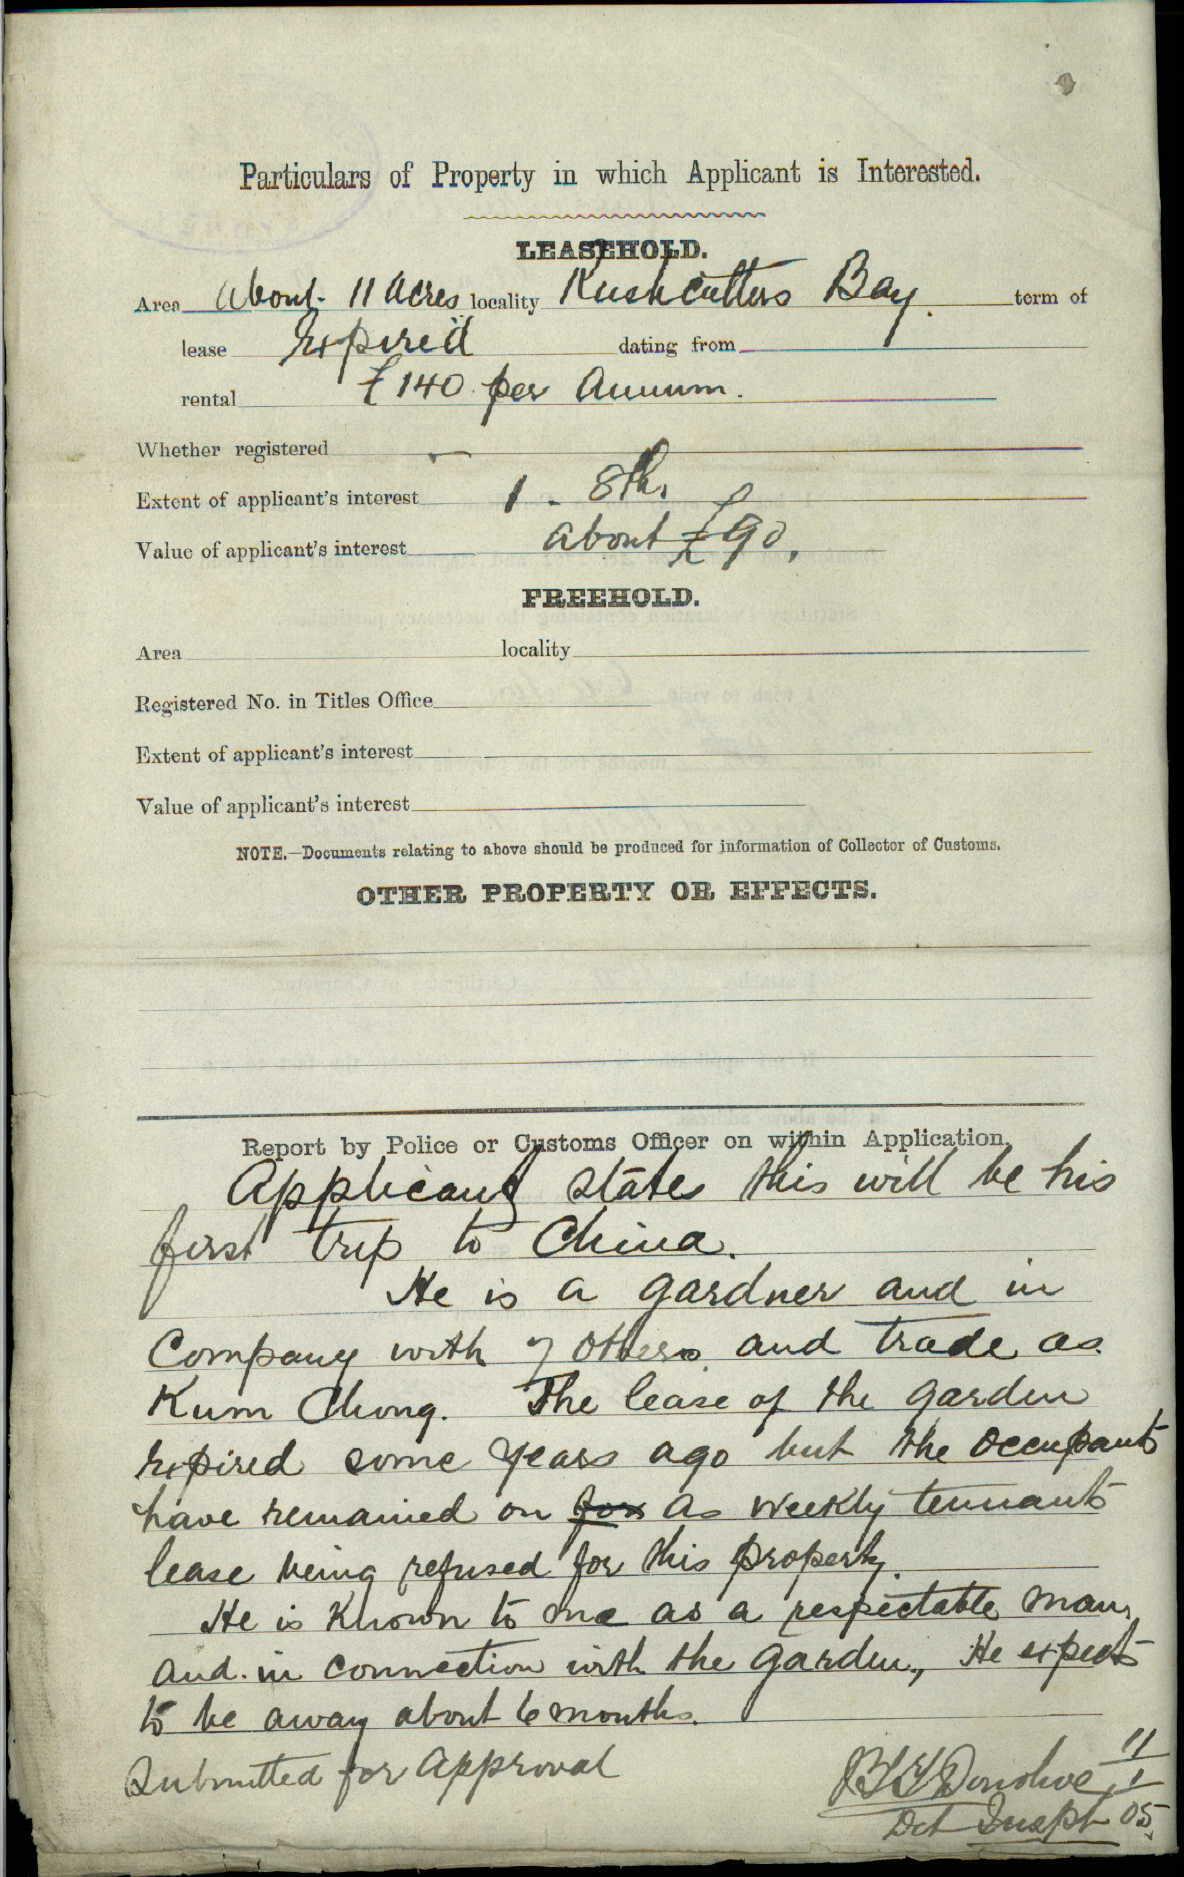 Particulars of Property in which Applicant is Interested.
LEASEHOLD.
Area About 11 Acres locality Rushcutters Bay. term of
lease Expired dating from
rental £140 per Annum.
Whether registered -
Extent of applicant's interest 1 - 8th.
Value of applicant's interest about £90.
FREEHOLD.
Area locality
Registered No. in Titles Office
Extent of applicant's interest
Value of applicant's interest
NOTE.—Documents relating to above should be produced for information of Collector of Customs.
OTHER PROPERTY OR EFFECTS.
Report by Police or Customs Officer on within Application.
Applicant states this will be his
first trip to China.
He is a gardner and in
Company with 7 others and trade as
Kum Chong. The lease of the garden
expired some years ago but the occupants
have remained on for as weekly tennants
lease being refused for this property.
He is known to me as a respectable man,
and in connection with the garden, He expects
to be away about 6 months.
Submitted for Approval
Donohoe 11
1
Det Inspt 05